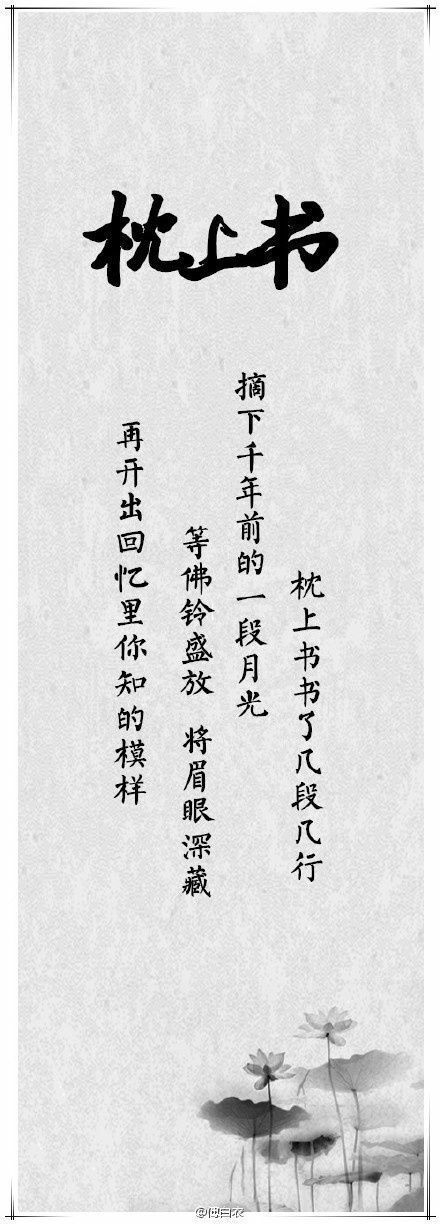 枕上书
枕上书书了几段几行
摘下千年前的一段月光
等佛铃盛放 将眉眼深藏
再开出回忆里你知的模样